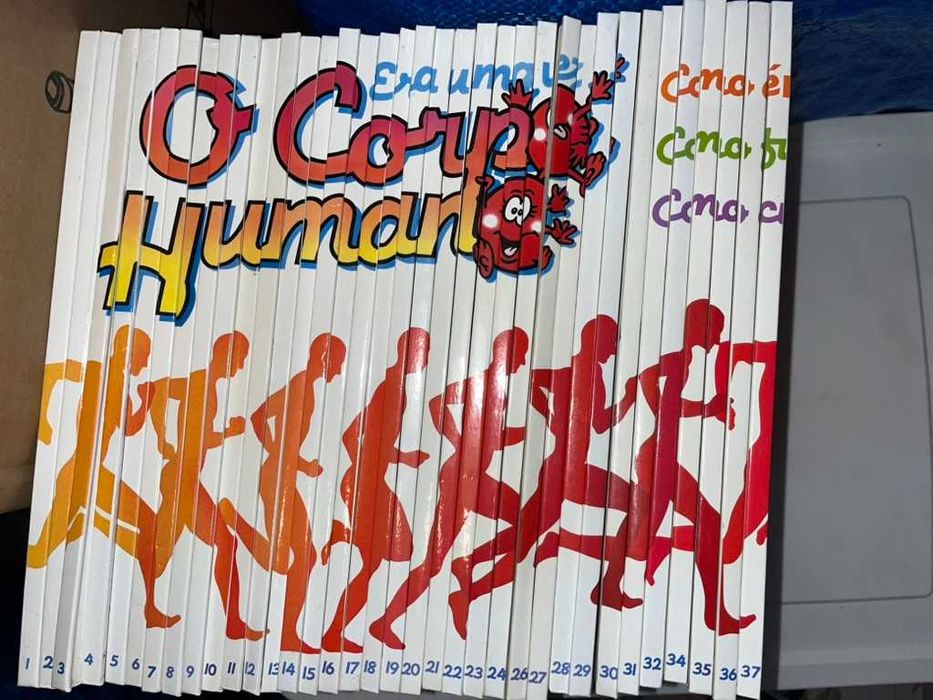 Era uma vez
O Corpo
Humano
Como é
Como fu
Como cu
1 2 3 4 5 6 7 8 9 10 11 12 13 14 15 16 17 18 19 20 21 22 23 24 26 27 28 29 30 31 32 34 35 36 37